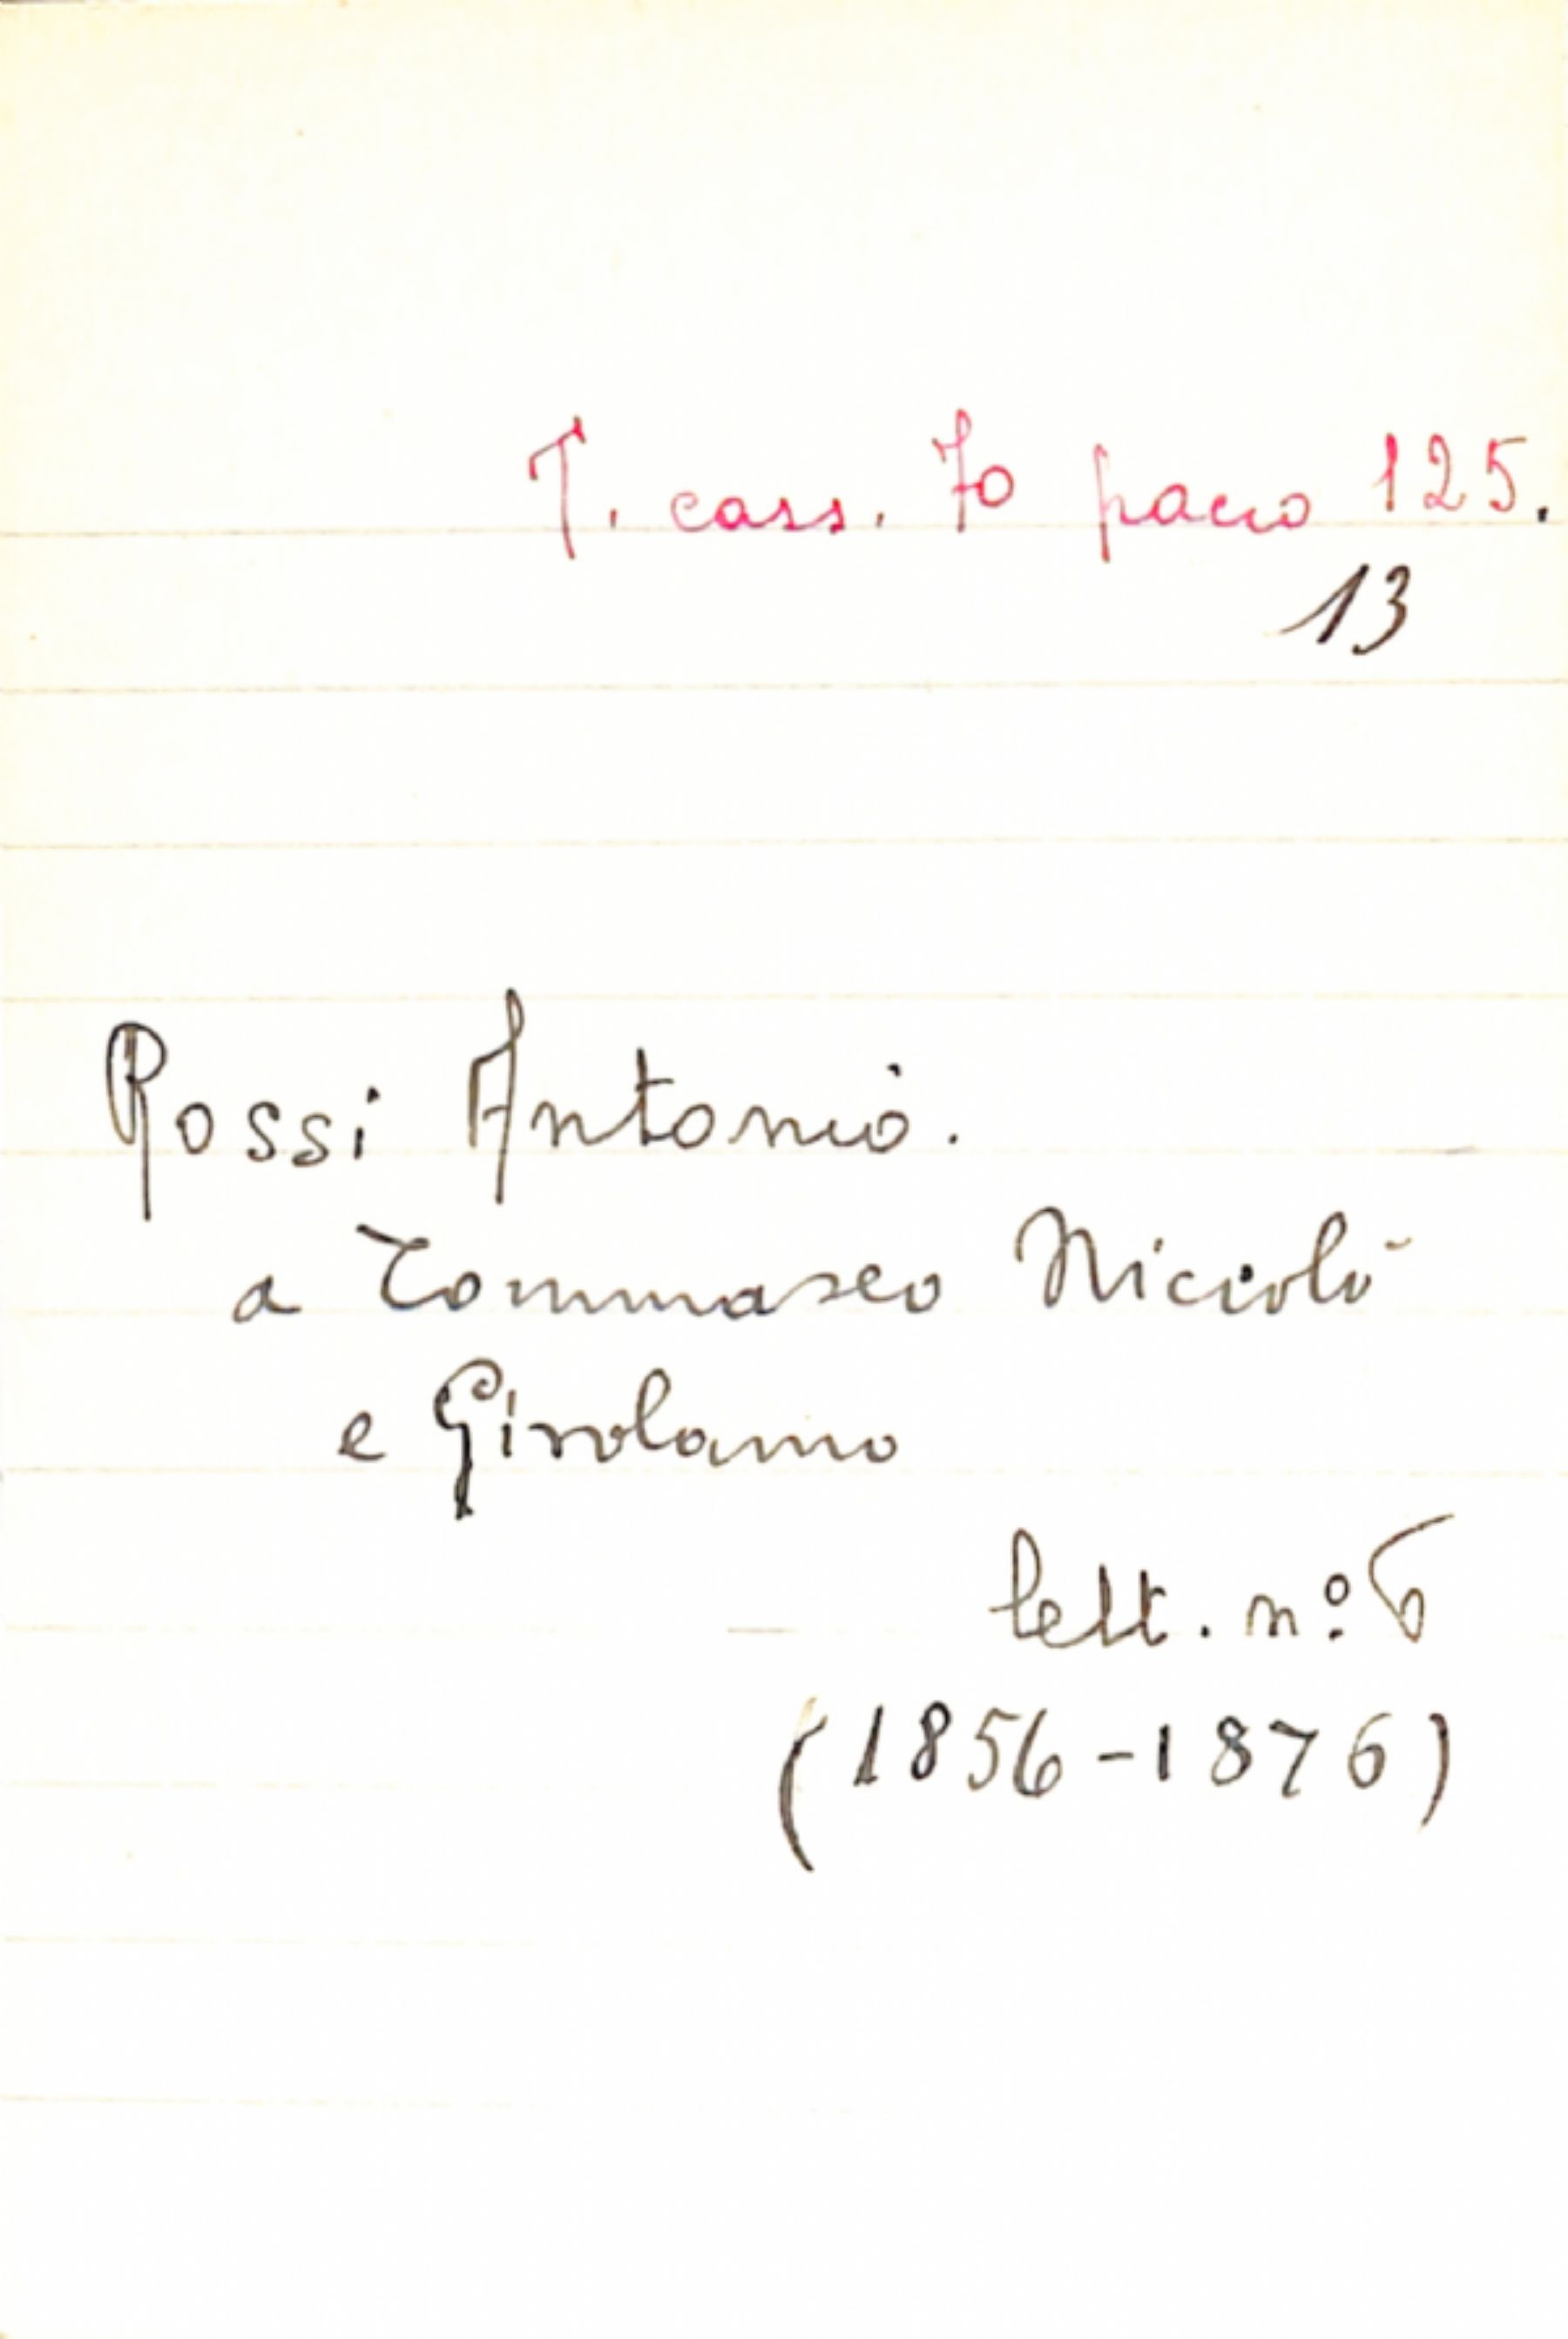 T. cass. 70 pacco 125.
13
Rossi Antonio.
a Tommaseo Niccolò
e Girolamo
lett. n.º 6
(1856-1876)